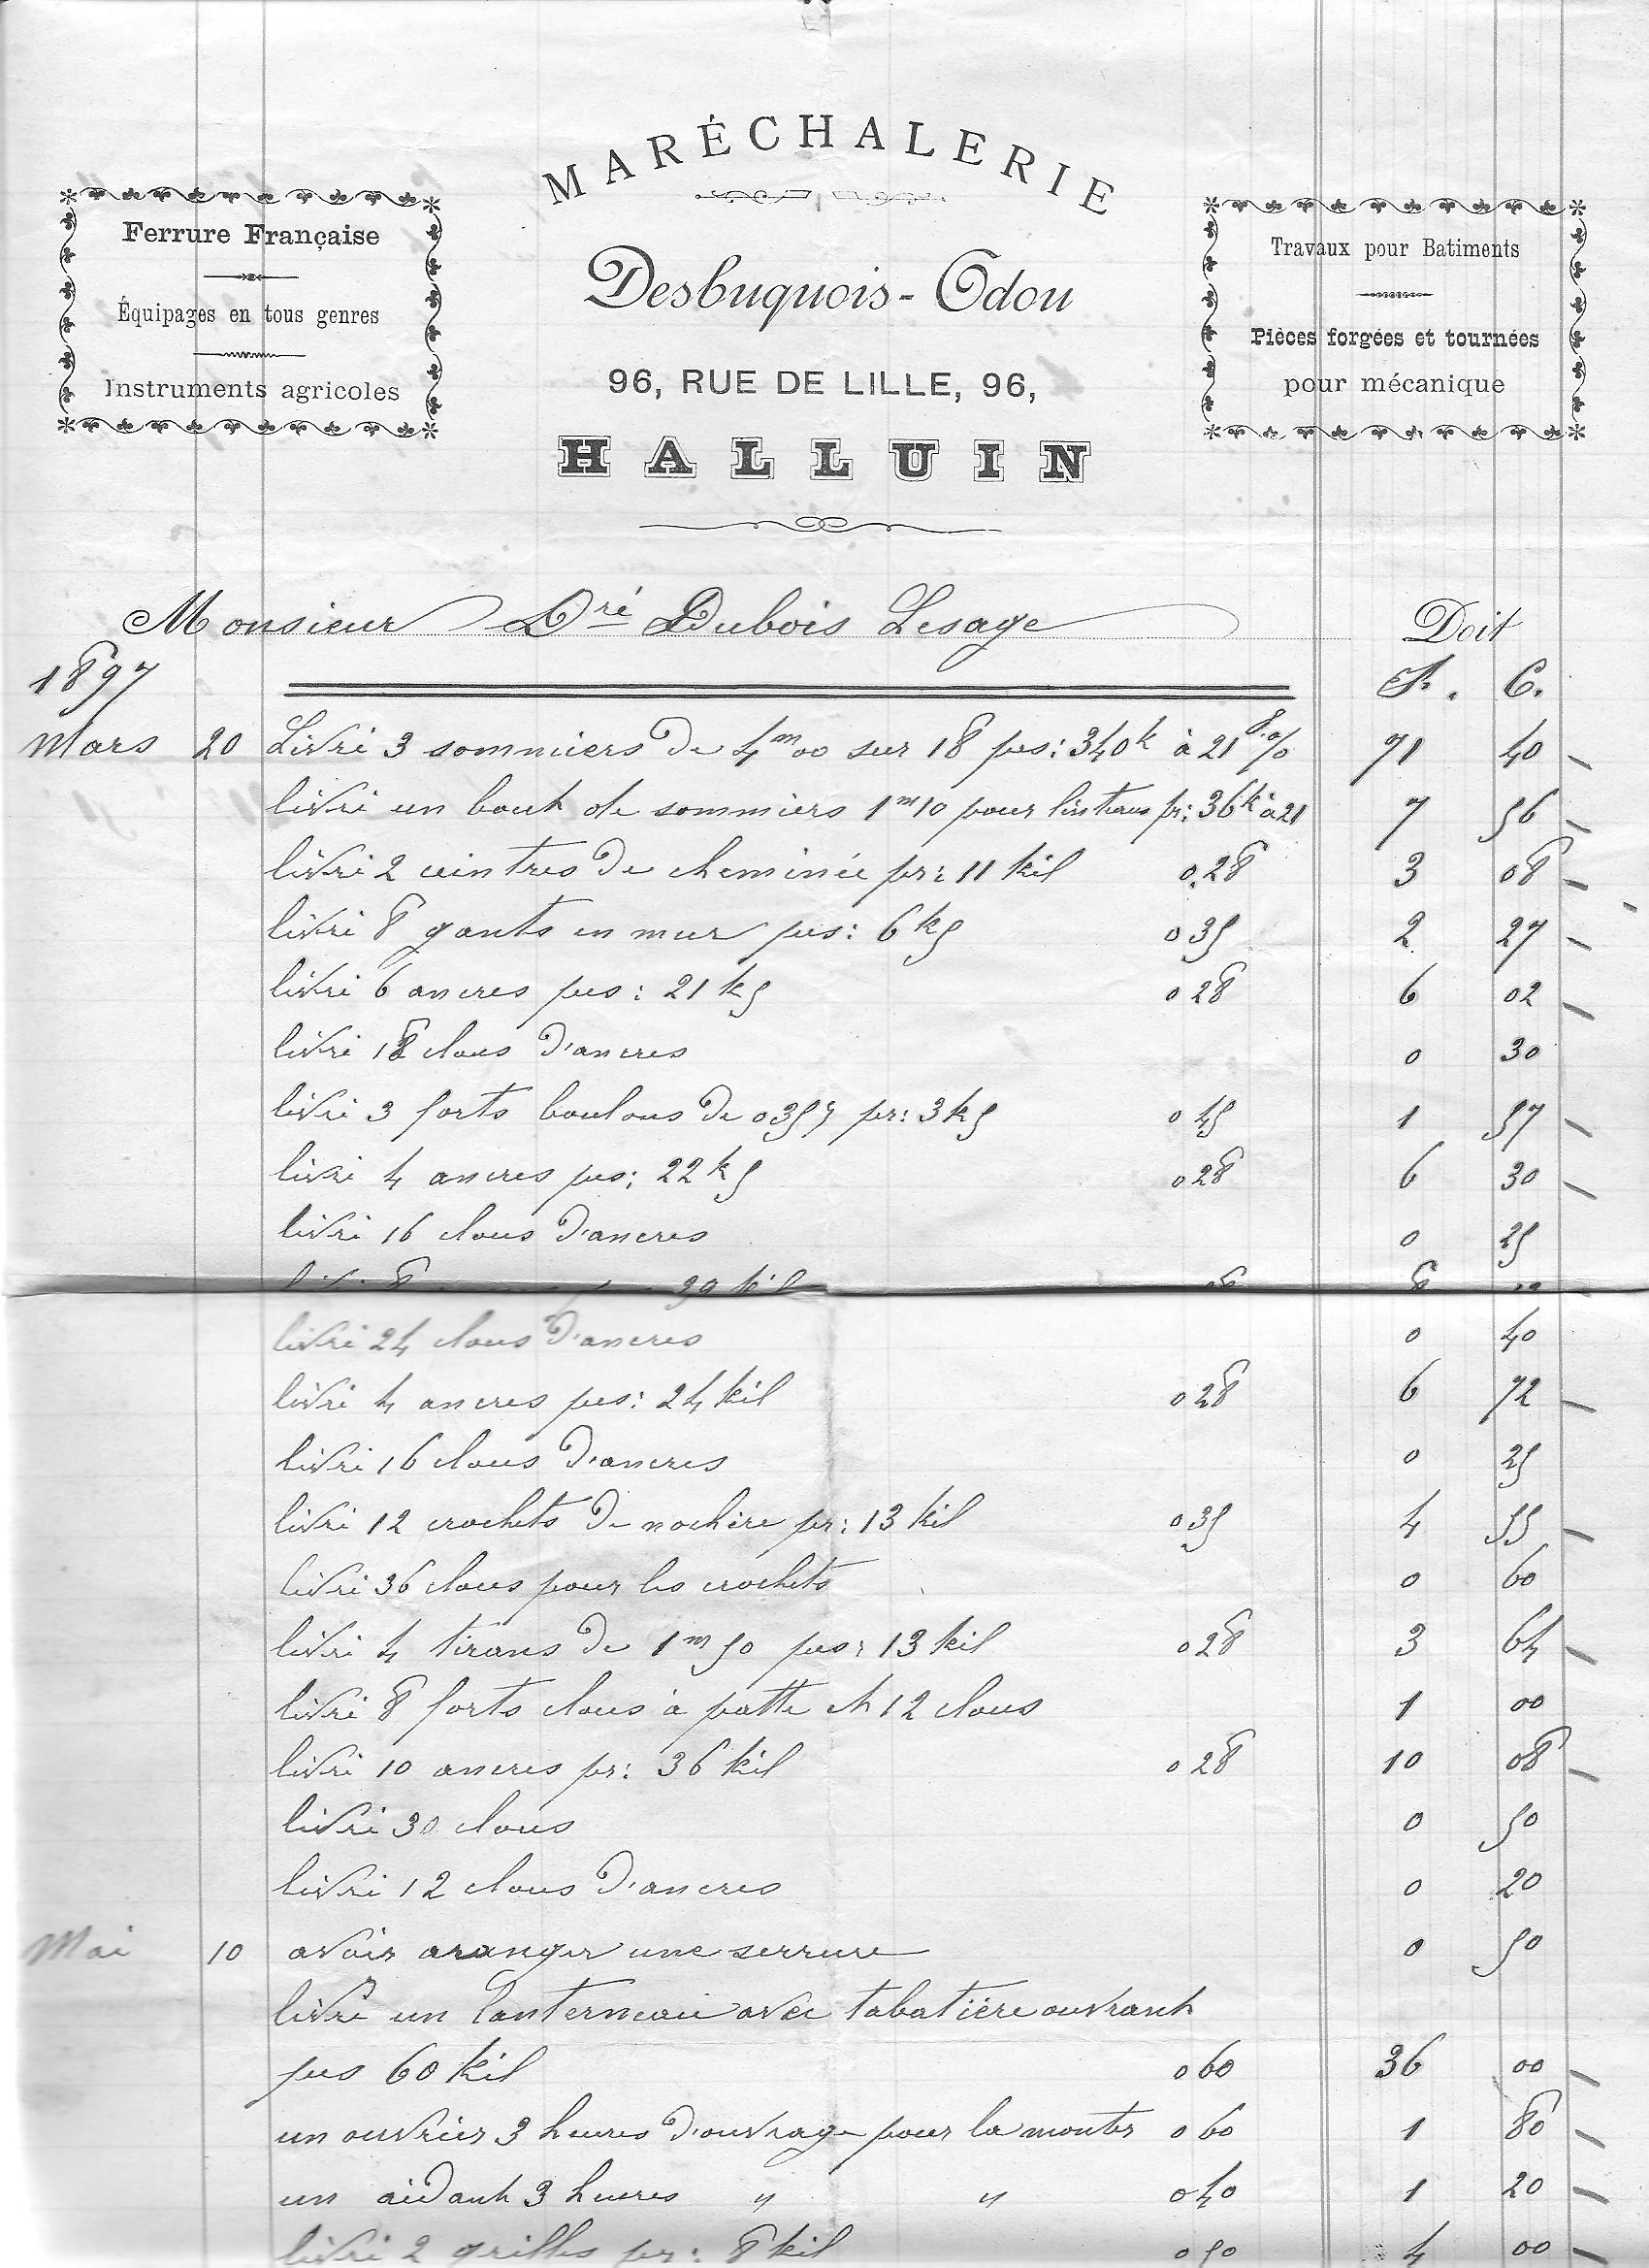 MARÉCHALERIE
Ferrure Française
Équipages en tous genres
Instruments agricoles
Desbuquois-Odou
96, RUE DE LILLE, 96,
HALLUIN
Travaux pour Batiments
Pièces forgées et tournées
pour mécanique
Monsieur Dré Dubois Lesage Doit
1897 F. C.
Mars 20 Livré 3 sommiers de 4m00 sur 18 pes: 340k à 21 f. % 71 40
livré un bout de sommiers 1m10 pour linteau pr: 36k à 21 7 56
livré 2 ceintres de cheminée pr: 11 kil 0.28 3 08
livré 8 gonts en mur pes: 6k5 0 35 2 27
livré 6 ancres pes: 21k5 0 28 6 02
livré 18 clous d'ancres 0 30
livré 3 forts boulons de pr: 3k5 0 45 1 57
livré 4 ancres pes: 22k5 0 28 6 30
livré 16 clous d'ancres 0 25
livré 24 clous d'ancres 0 40
livré 4 ancres pes: 24 kil 0 28 6 72
livré 16 clous d'ancres 0 25
livré 12 crochets de nochère pr: 13 kil 0 35 4 55
livré 36 clous pour les crochets 0 60
livré 4 tirans de 1m50 pes: 13 kil 0 28 3 64
livré 8 forts clous à patte et 12 clous 1 00
livré 10 ancres pr: 36 kil 0 28 10 08
livré 30 clous 0 50
livré 12 clous d'ancres 0 20
Mai 10 avoir aranger une serrure 0 50
livré un lanterneau avec tabatière ouvrant
pes 60 kil 0 60 36 00
un ouvrier 3 heures d'ouvrage pour la monter 0 60 1 80
un aidant 3 heures " " 0 40 1 20
livré 2 grilles pr: 8 kil 0 50 4 00